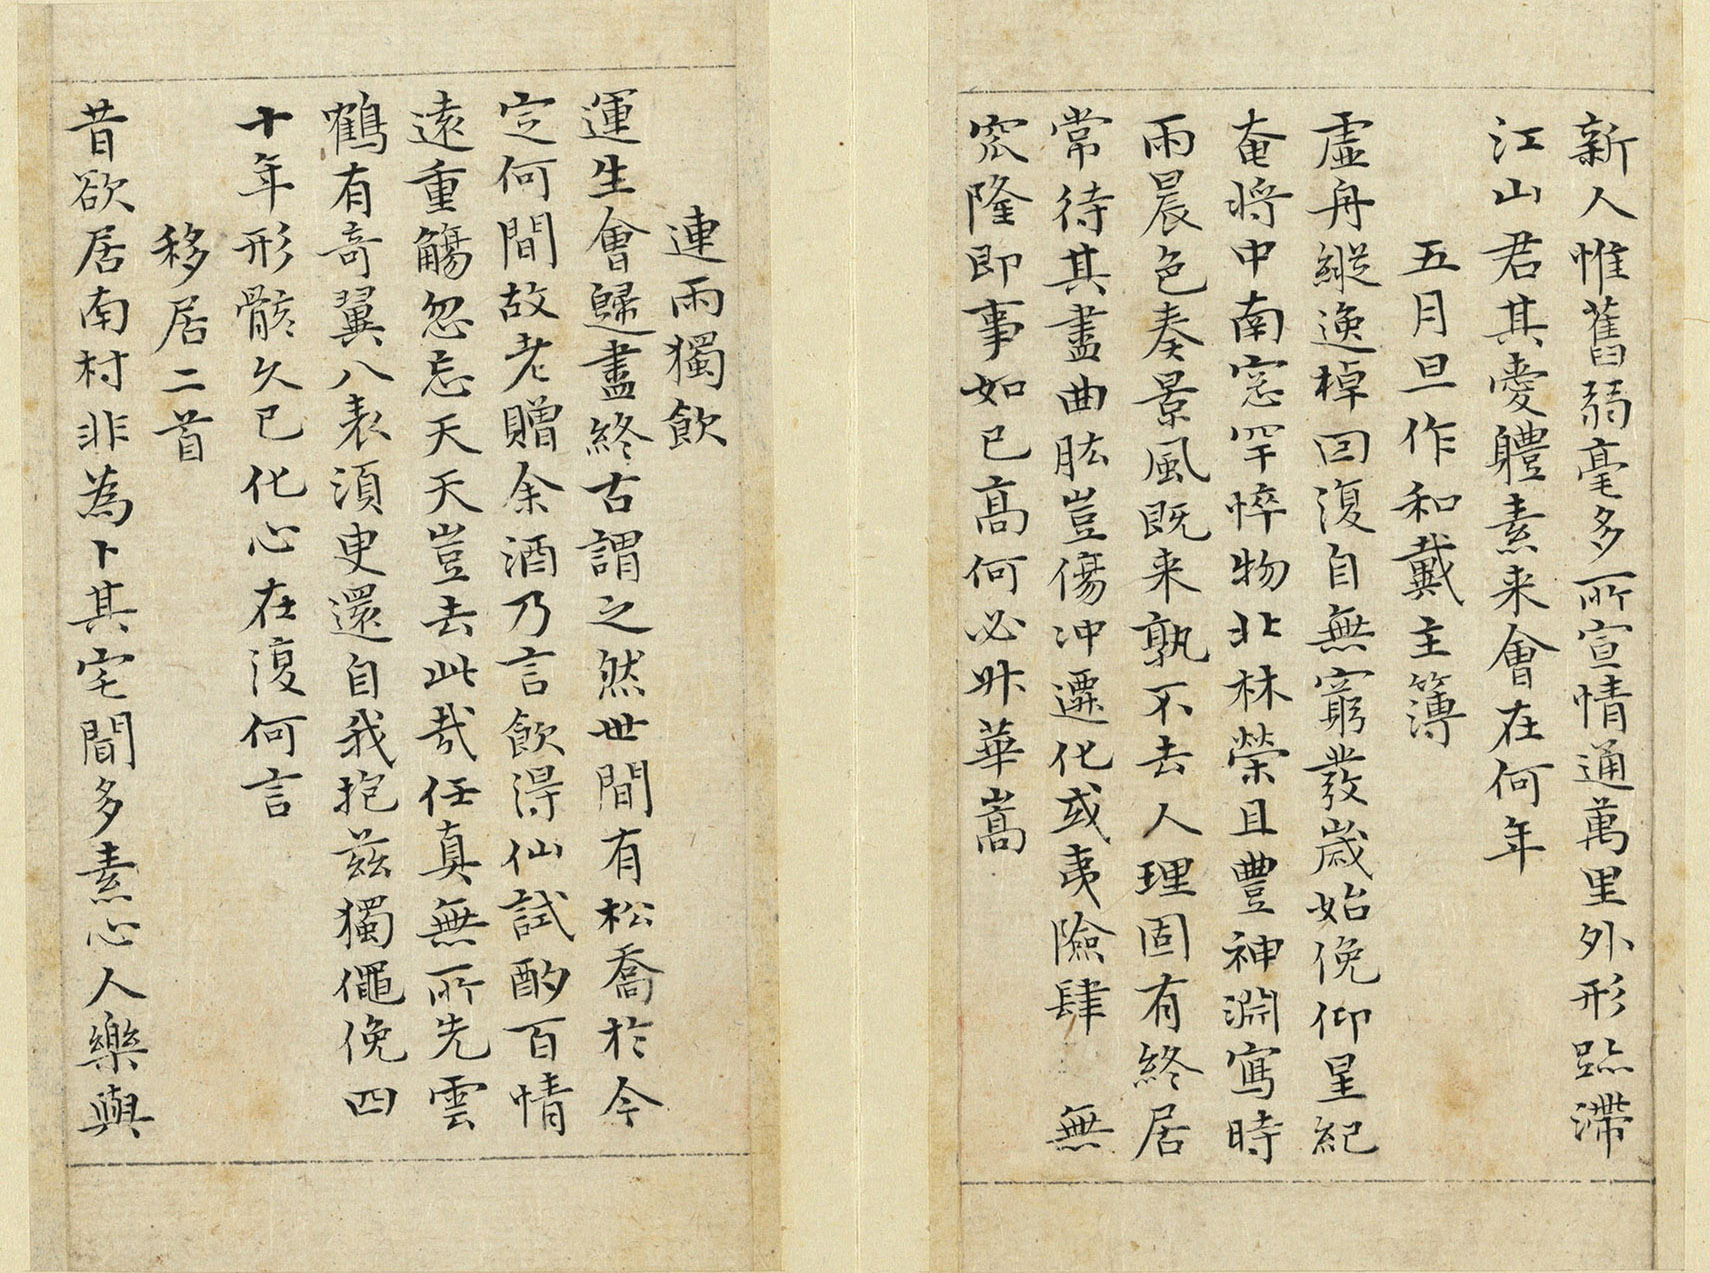 新人惟舊弱毫多所宣情通萬里外形跡滯
江山君其愛體素来會在何年
五月旦作和戴主簿
虛舟縱逸棹回復自無窮發歲始俛仰星紀
奄將中南窓罕悴物北林榮且豐神淵寫時
雨晨色奏景風既来孰不去人理固有終居
常待其盡曲肱豈傷沖遷化或夷險肆 無
窊隆即事如已高何必升華嵩
連雨獨飲
運生會歸盡終古謂之然世間有松喬於今
定何間故老贈余酒乃言飲得仙試酌百情
遠重觴忽忘天天豈去此哉任真無所先雲
鶴有奇翼八表須臾還自我抱茲獨僶俛四
十年形骸久已化心在復何言
移居二首
昔欲居南村非為卜其宅聞多素心人樂與